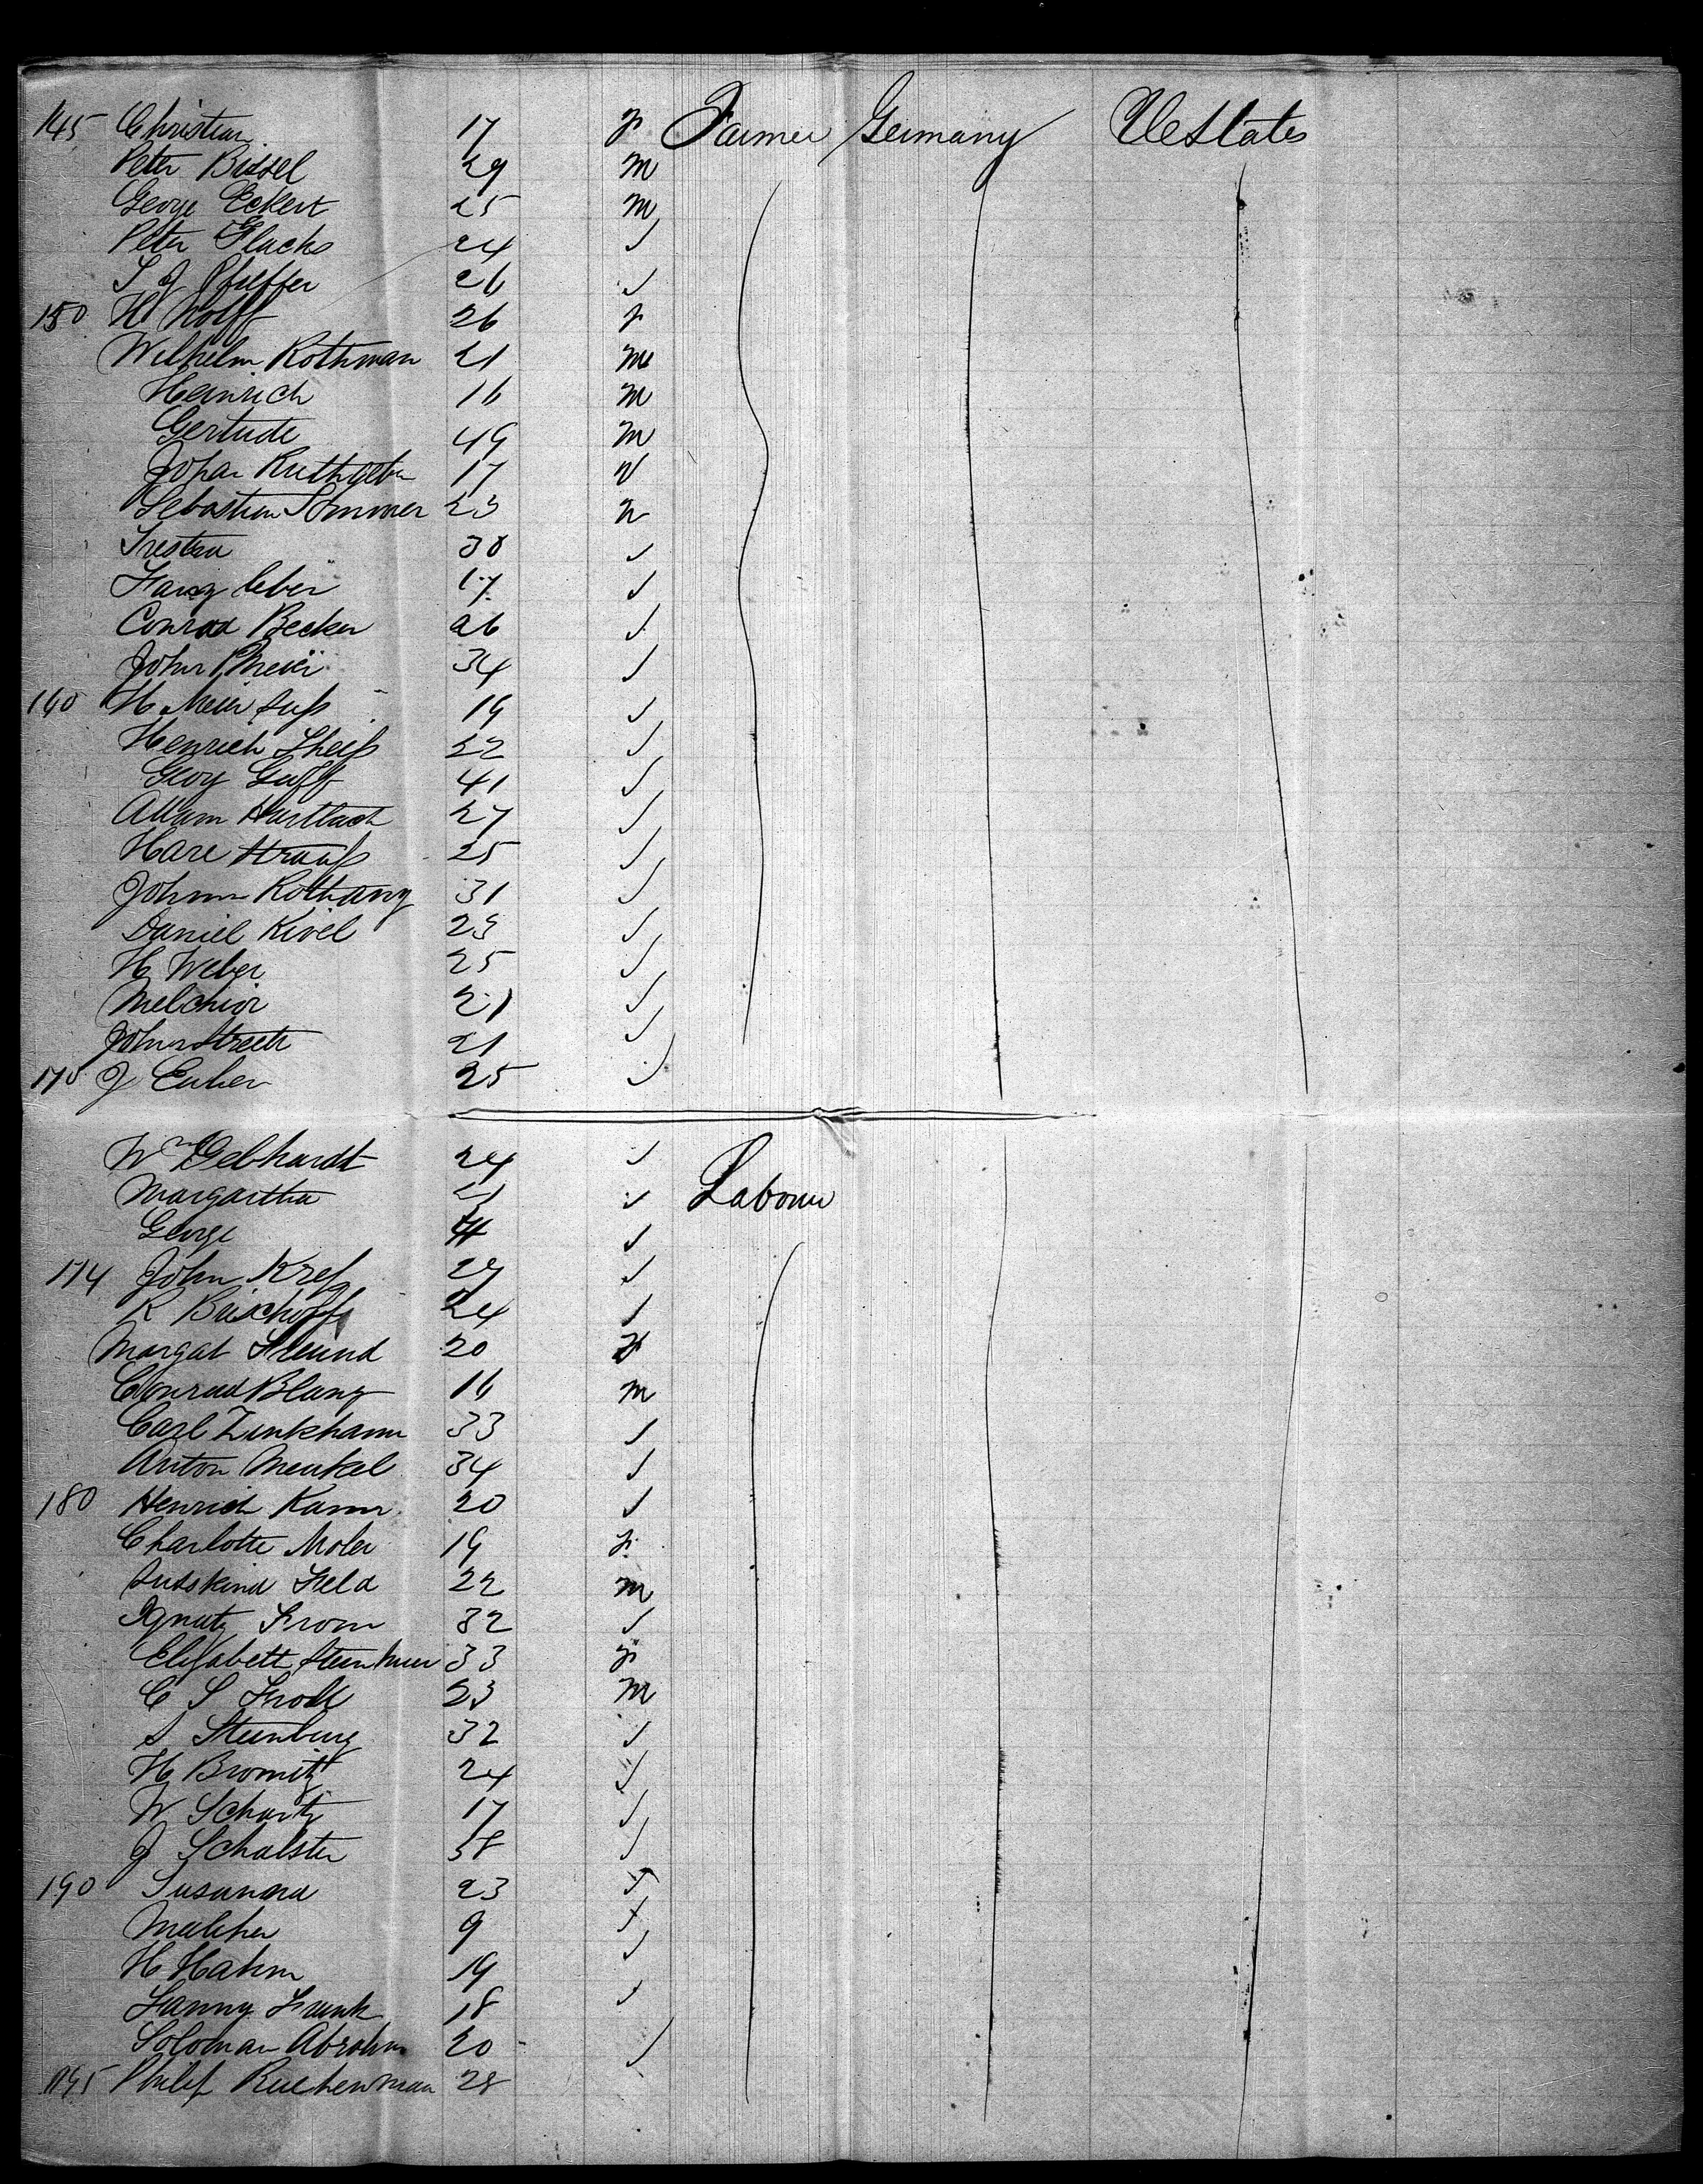 145 Christian 17 F Farmer Germany UeStates
Peter Bissel 29 M
George Eckert 25 M
Peter Flachs 24 ✓
S J Pfeiffer 26 ✓
150 H Wolff 26 F
Wilhelm Rothman 21 M
Heinrich 16 M
Gertude 49 M
Johan Ruthgeber 17
Sebastian Sommer 23
30
Franz Eber 17 ✓
Conrad Becker 26 ✓
John Meier 34 ✓
160 H Meier 19 ✓
Henrich Theiß 22 ✓
Georg Guff 41 ✓
Adam Hartlach 27 ✓
Hare Strauß 25 ✓
Johann Rothang 31 ✓
Daniel Kivel 23 ✓
H Weber 25 ✓
Melchior 21 ✓
John Streeti 21 ✓
170 J Euler 25 ✓
Wm Gebhardt 24 ✓
Margartha 21 ✓ Labourer
George ✓
174 John Kreß 27 ✓
R Bischoff 24 ✓
Margat Freund 20 F
Conrad Blanz 16 M
Carl Zinkhann 33 ✓
Anton Menkel 34 ✓
180 Henrich Kamm 20 ✓
Charlotte Moler 19 F
Susskind Feld 22 M
Ignatz From 32 ✓
Elisabeth 33 F
C S Frodl 23 M
S Steenburg 32 ✓
H Bromitz 24 ✓
W Schartz 17 ✓
J Schalster 58 ✓
190 Susannna 23 F
9 F
H Hahm 19 ✓
Fanny Frank 18 ✓
Soloman Abraham 20 ✓
195 Philip Ruchenman 28